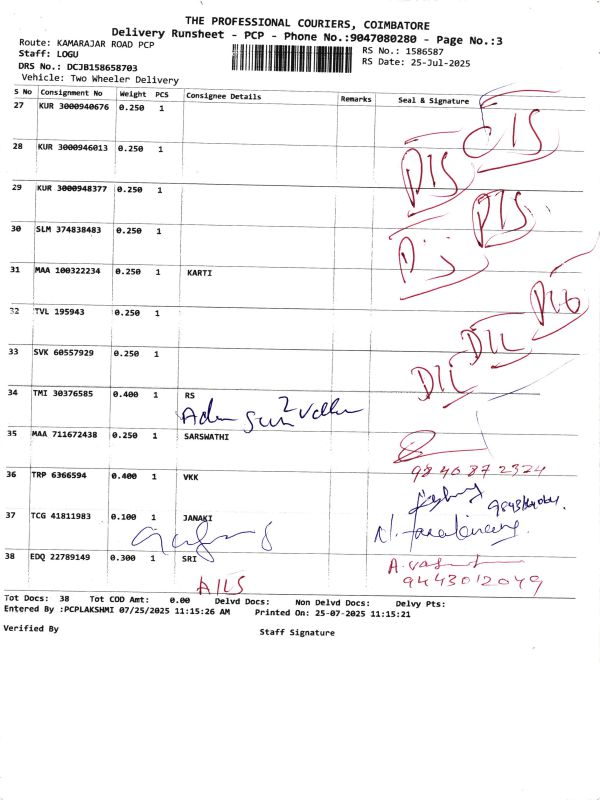 THE PROFESSIONAL COURIERS, COIMBATORE
Delivery Runsheet - PCP - Phone No.:9047080280 - Page No.:3
Route: KAMARAJAR ROAD PCP
RS No.: 1586587
Staff: LOGU
RS Date: 25-Jul-2025
DRS No.: DCJB158658703
Vehicle: Two Wheeler Delivery
S No Consignment No Weight PCS Consignee Details Remarks Seal & Signature
27 KUR 3000940676 0.250 1
28 KUR 3000946013 0.250 1
29 KUR 3000948377 0.250 1
30 SLM 374838483 0.250 1
31 MAA 100322234 0.250 1 KARTI
32 TVL 195943 0.250 1
33 SVK 60557929 0.250 1
34 TMI 30376585 0.400 1 RS
35 MAA 711672438 0.250 1 SARSWATHI
9840872324
36 TRP 6366594 0.400 1 VKK
37 TCG 41811983 0.100 1 JANAKI
38 EDQ 22789149 0.300 1 SRI
9443012049
Tot Docs: 38 Tot COD Amt: 0.00 Delvd Docs: Non Delvd Docs: Delvy Pts:
Entered By :PCPLAKSHMI 07/25/2025 11:15:26 AM Printed On: 25-07-2025 11:15:21
Verified By
Staff Signature